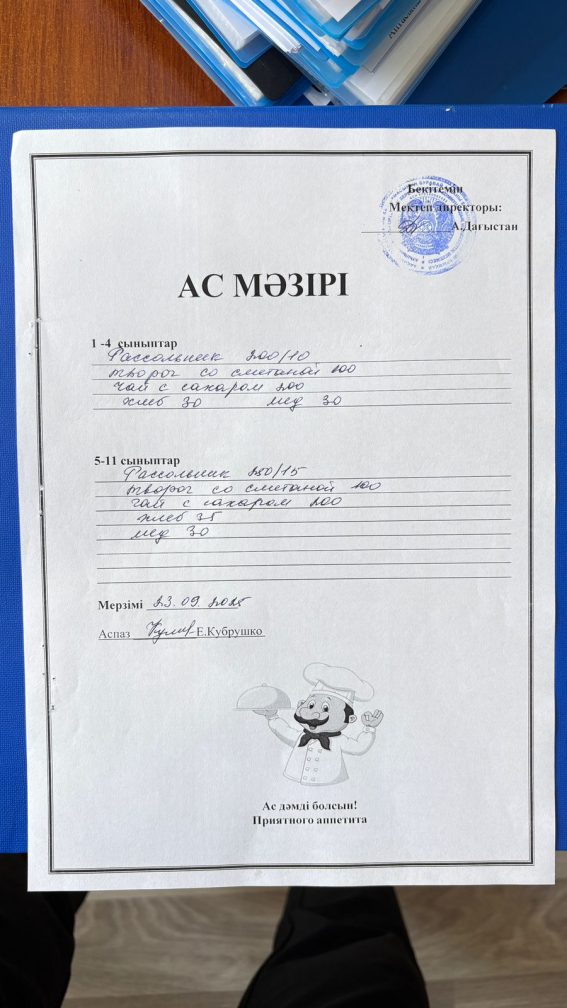 Бекітемін
Мектеп директоры:
А.Дағыстан
АС МӘЗІРІ
1 -4 сыныптар
Рассольник 200/10
творог со сметаной 100
чай с сахаром 200
хлеб 30 мед 30
5-11 сыныптар
Рассольник 250/15
творог со сметаной 100
чай с сахаром 200
хлеб 35
мед 30
Мерзімі 23.09.2025
Аспаз Е.Кубрушко
Ас дәмді болсын!
Приятного аппетита